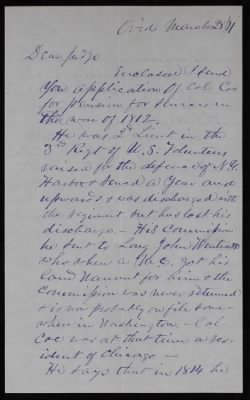 March 28/71
Dear Judge
Enclosed I send
You application of Col Coe
for pension for Services in
the war of 1812.
He was 2d Lieut in the
3rd Regt of U.S. Volunteers
raised for the defence of N.Y.
Harbor & served a Year and
upwards & was discharged with
the regiment but has lost his
discharge. — His Commission
he sent to Long John Wentworth
who when a M.C. got his
land Warrant for him & the
Commission was never returned
& is now probably on file some-
where in Washington. — Col
Coe was at that time a res-
ident of Chicago —
He says that in 1814 he